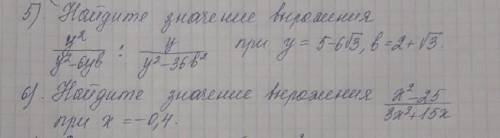 5). Найдите значение выражения
y²/(y²-6yb) : y/(y²-36b²) при y = 5-6√3, b = 2+√3.
6). Найдите значение выражения (x²-25)/(3x²+15x)
при x = -0,4.